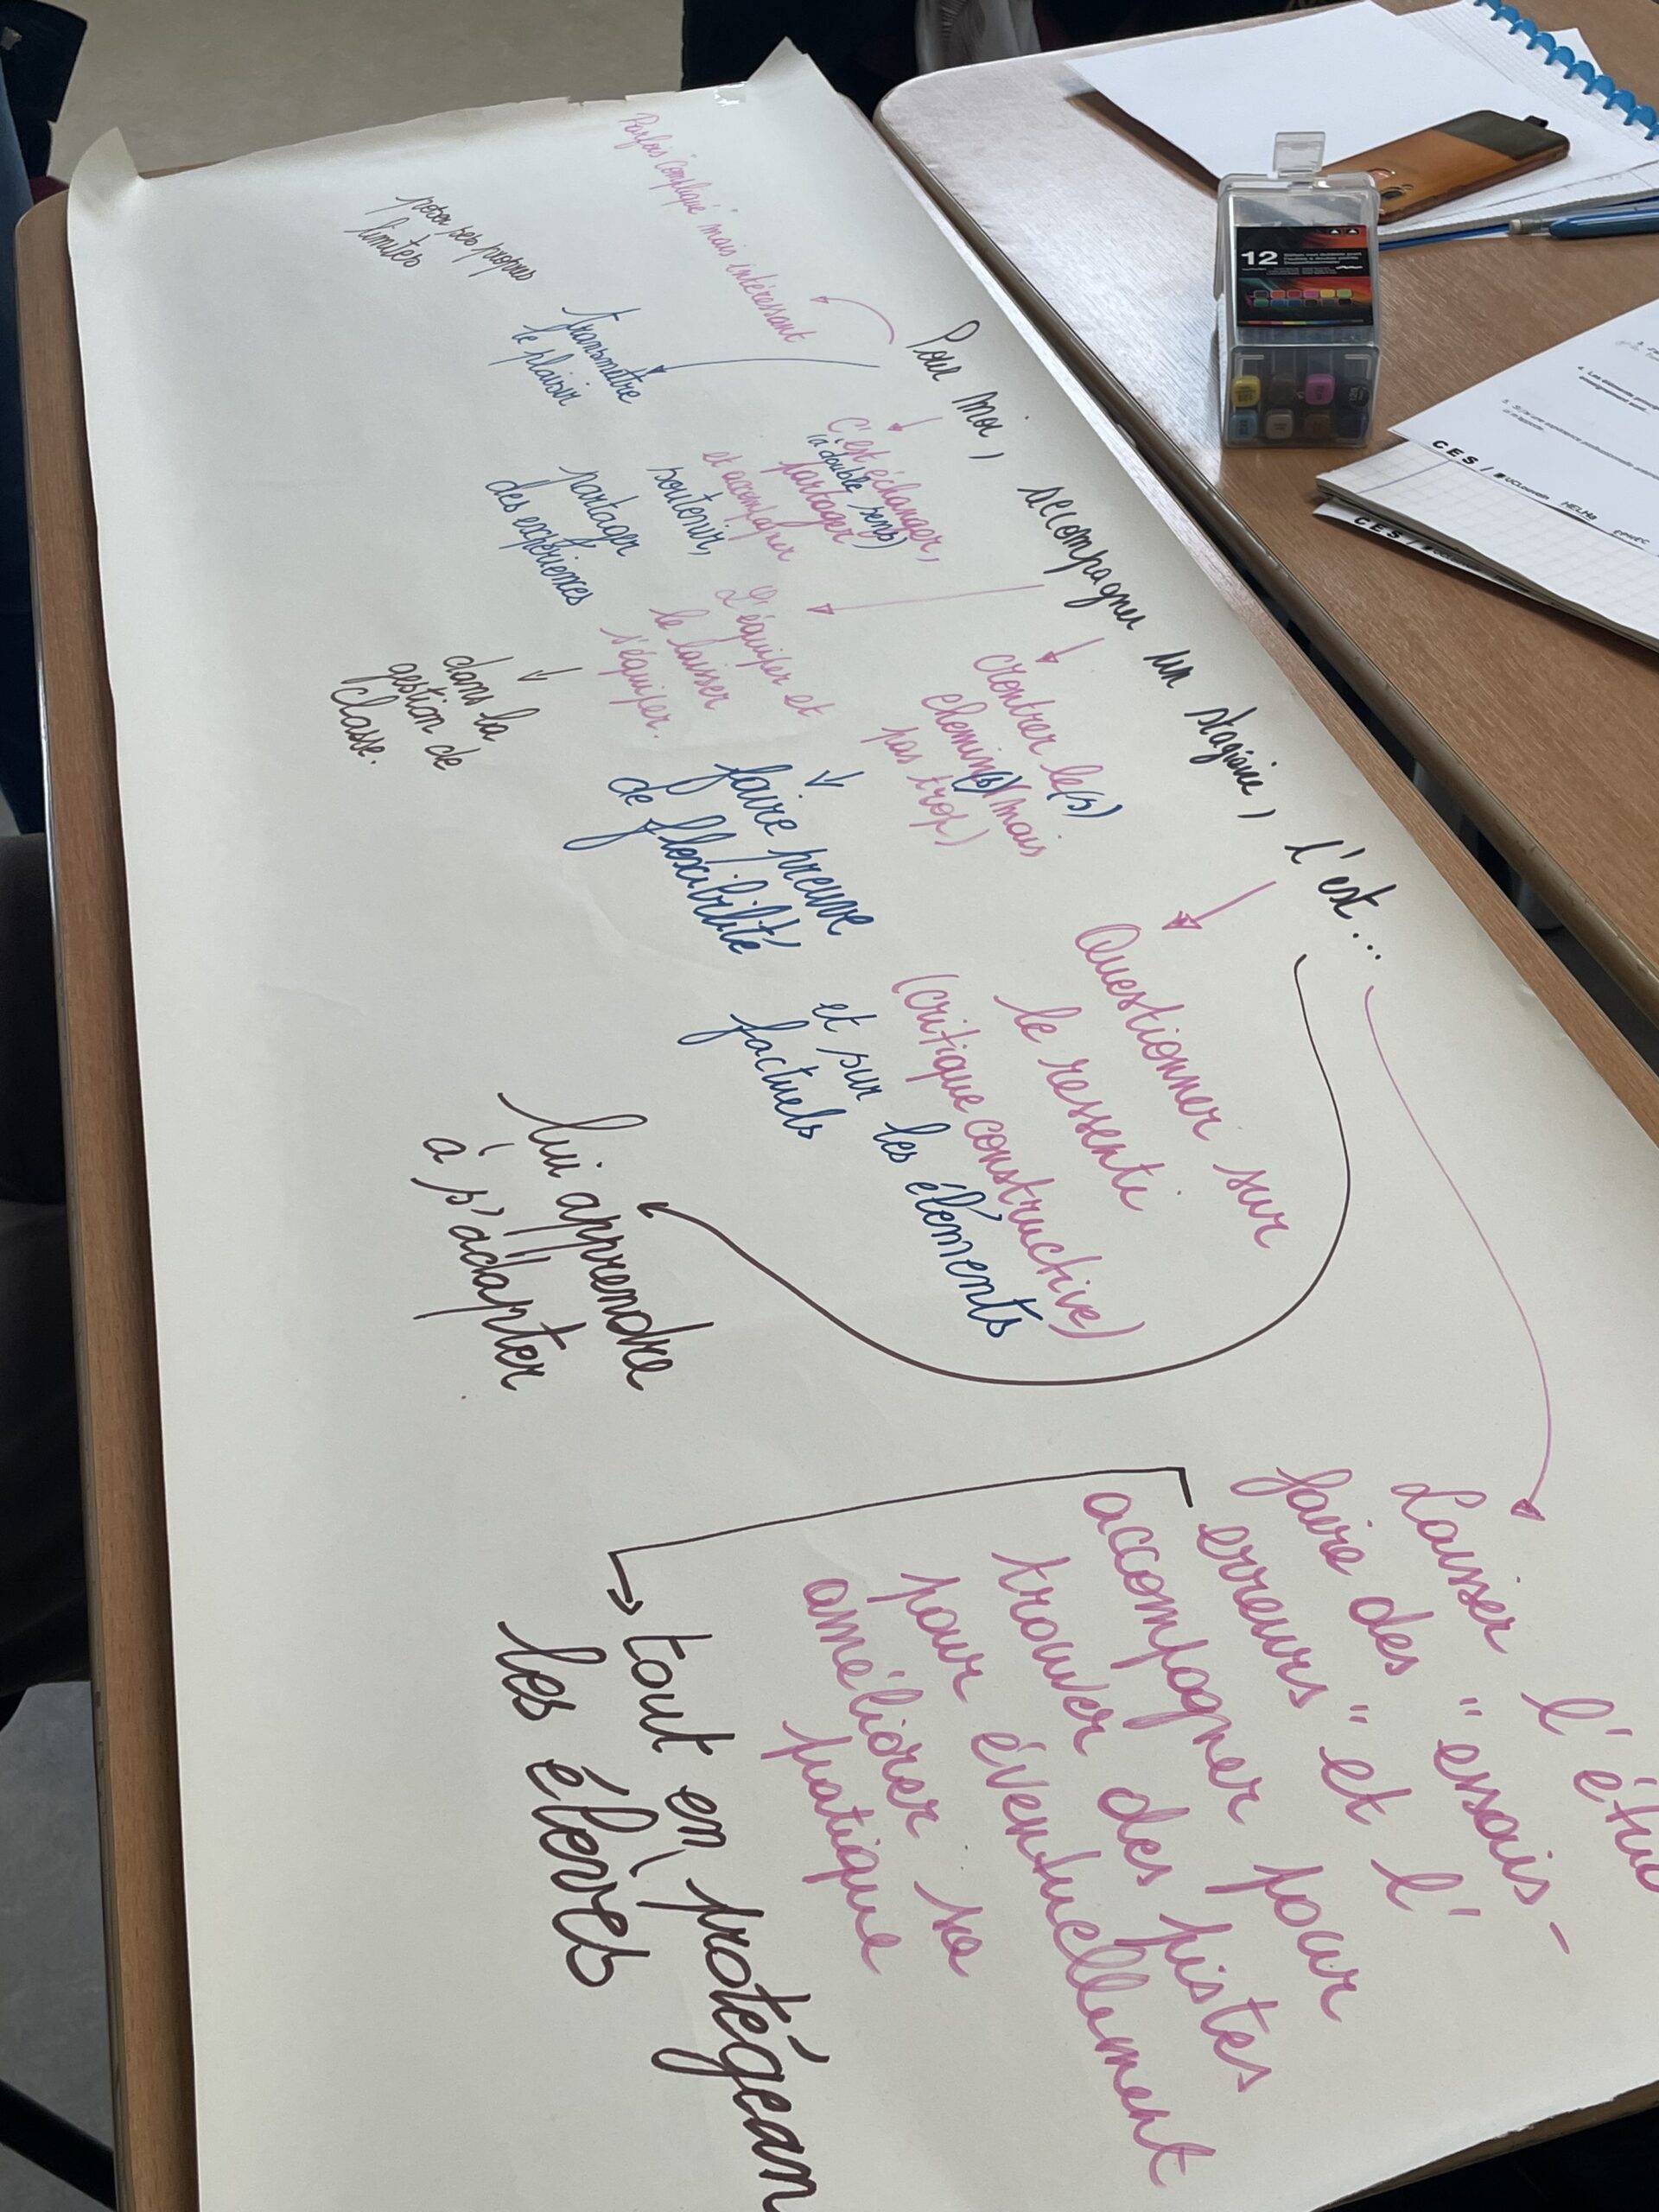 Pour moi, accompagner un stagiaire, c'est...
Parfois compliqué mais intéressant
poser ses propres
limites
Transmettre
le plaisir
C'est échanger,
(à double sens)
partager
et accompagner
soutenir,
partager
des expériences
L'équiper et
le laisser
s'équiper.
dans la
gestion de
classe.
Montrer le(s)
chemin(s) (mais
pas trop)
faire preuve
de flexibilité
Questionner sur
le ressenti
(critique constructive)
et sur les éléments
factuels
lui apprendre
à s'adapter
Laisser l'étud
faire des "essais-
erreurs" et l'
accompagner pour
trouver des pistes
pour éventuellement
améliorer sa
pratique
tout en protégean
les élèves
12
CES / UCLouvain HELHa EPHEC
CES /